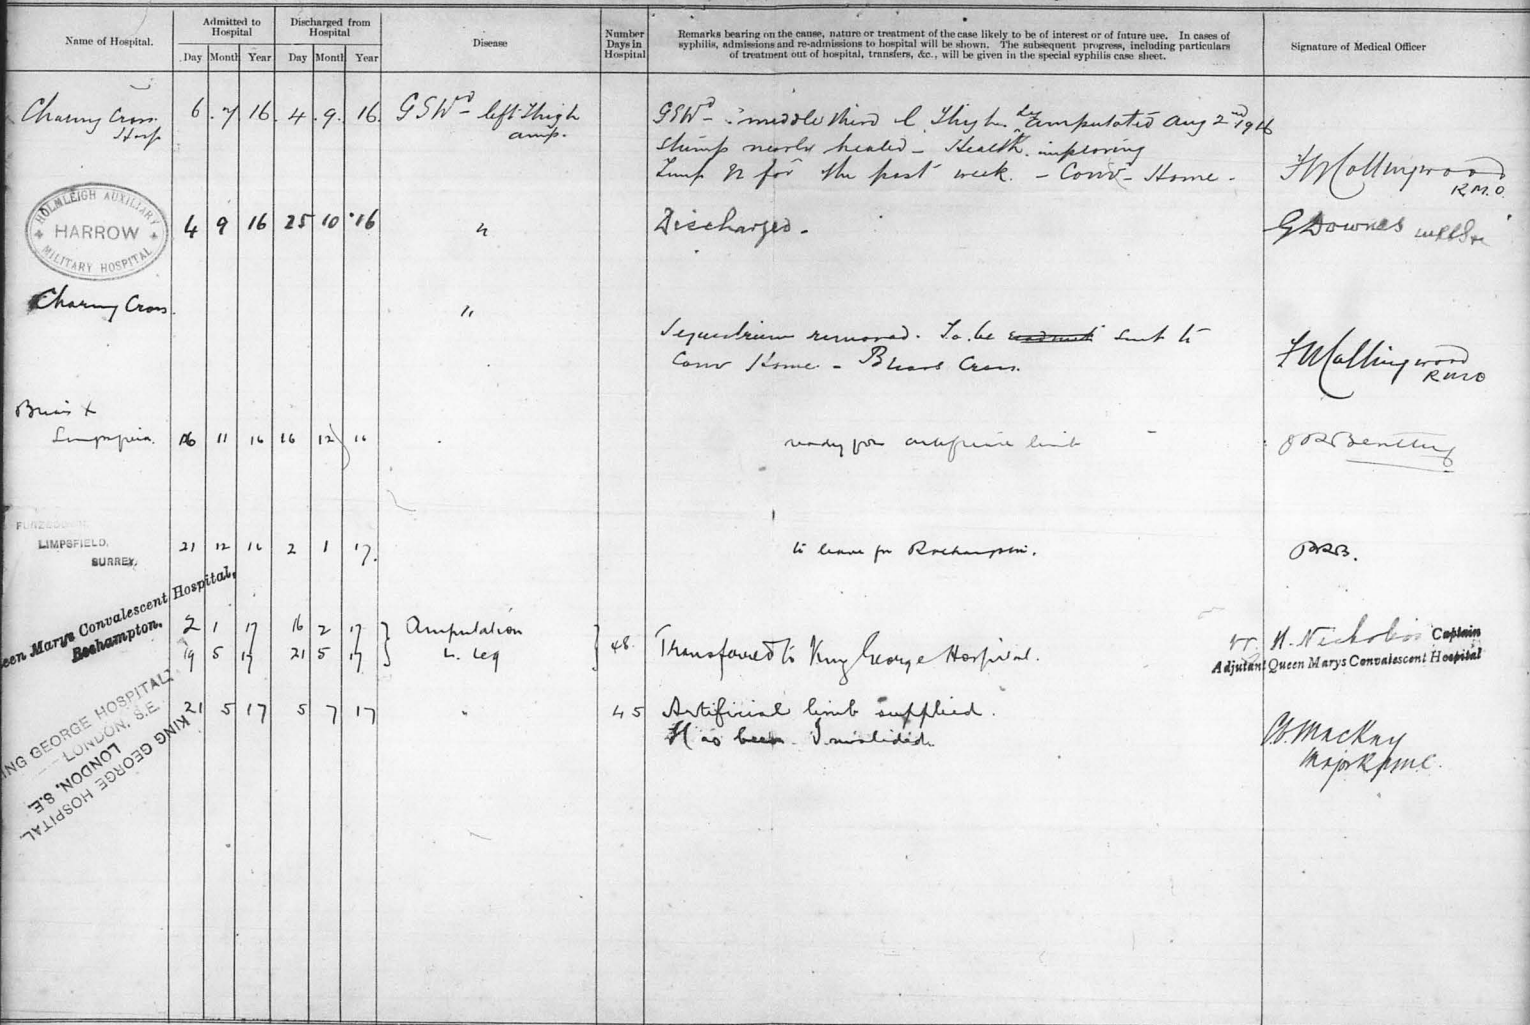 Name of Hospital.
Admitted to Hospital
Discharged from Hospital
Disease
Number Days in Hospital
Remarks bearing on the cause, nature or treatment of the case likely to be of interest or of future use. In cases of
syphilis, admissions and re-admissions to hospital will be shown. The subsequent progress, including particulars
of treatment out of hospital, transfers, &c., will be given in the special syphilis case sheet.
Signature of Medical Officer
Day Month Year Day Month Year
Charing Cross Hosp 6 . 7 . 16 . 4 . 9 . 16. GSWd - left Thigh amp.
GSWd - middle third L. Thigh. Leg amputated Aug 2nd 1916
Stump nearly healed - Health improving
Temp N for the past week. - Conv - Home -
F W Collingwood
R.M.O.
HOLMLEIGH AUXILIARY
HARROW
MILITARY HOSPITAL
4 9 16 25 10 16 " Discharged. G Downes
Charing Cross. "
Sequestrum removed. To be sent to
Conv Home - Briars Cross.
F W Collingwood
RMO
Limpsfield. 26 11 16 16 12 16 ready for artificial limb
LIMPSFIELD,
SURREY.
21 12 16 2 1 17. to leave for Roehampton.
Queen Marys Convalescent Hospital,
Roehampton.
2 1 17 16 2 17 Amputation
19 5 17 21 5 17 L. Leg
48. Transferred to King George Hospital.
H. Nicholson Captain
Adjutant Queen Marys Convalescent Hospital
KING GEORGE HOSPITAL
LONDON, S.E.
KING GEORGE HOSPITAL
LONDON, S.E.
21 5 17 5 7 17 " 45 Artificial limb supplied.
Has been Invalided
MacKay
Major RAMC.